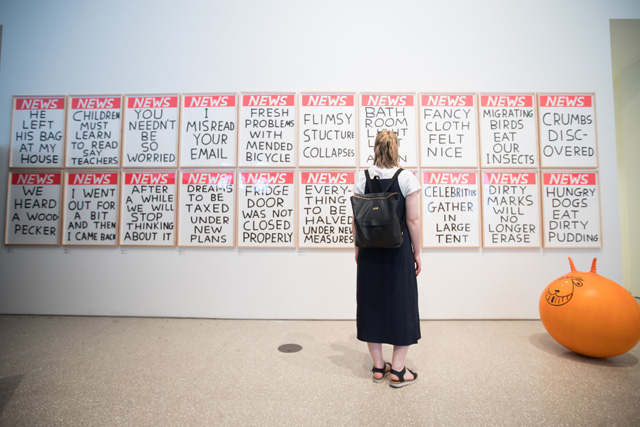 NEWS
HE
LEFT
HIS BAG
AT MY
HOUSE
NEWS
CHILDREN
MUST
LEARN
TO READ
SAY
TEACHERS
NEWS
YOU
NEEDN'T
BE
SO
WORRIED
NEWS
I
MISREAD
YOUR
EMAIL
NEWS
FRESH
PROBLEMS
WITH
MENDED
BICYCLE
NEWS
FLIMSY
STUCTURE
COLLAPSES
NEWS
BATH
ROOM
NEWS
FANCY
CLOTH
FELT
NICE
NEWS
MIGRATING
BIRDS
EAT
OUR
INSECTS
NEWS
CRUMBS
DISC-
OVERED
NEWS
WE
HEARD
A WOOD
PECKER
NEWS
I WENT
OUT FOR
A BIT
AND THEN
I CAME BACK
NEWS
AFTER
A WHILE
WE WILL
STOP
THINKING
ABOUT IT
NEWS
DREAMS
TO BE
TAXED
UNDER
NEW
PLANS
NEWS
FRIDGE
DOOR
WAS NOT
CLOSED
PROPERLY
NEWS
EVERY-
THING
TO BE
HALVED
UNDER NEW
MEASURES
NEWS
CELEBRITIES
GATHER
IN
LARGE
TENT
NEWS
DIRTY
MARKS
WILL
NO
LONGER
ERASE
NEWS
HUNGRY
DOGS
EAT
DIRTY
PUDDING